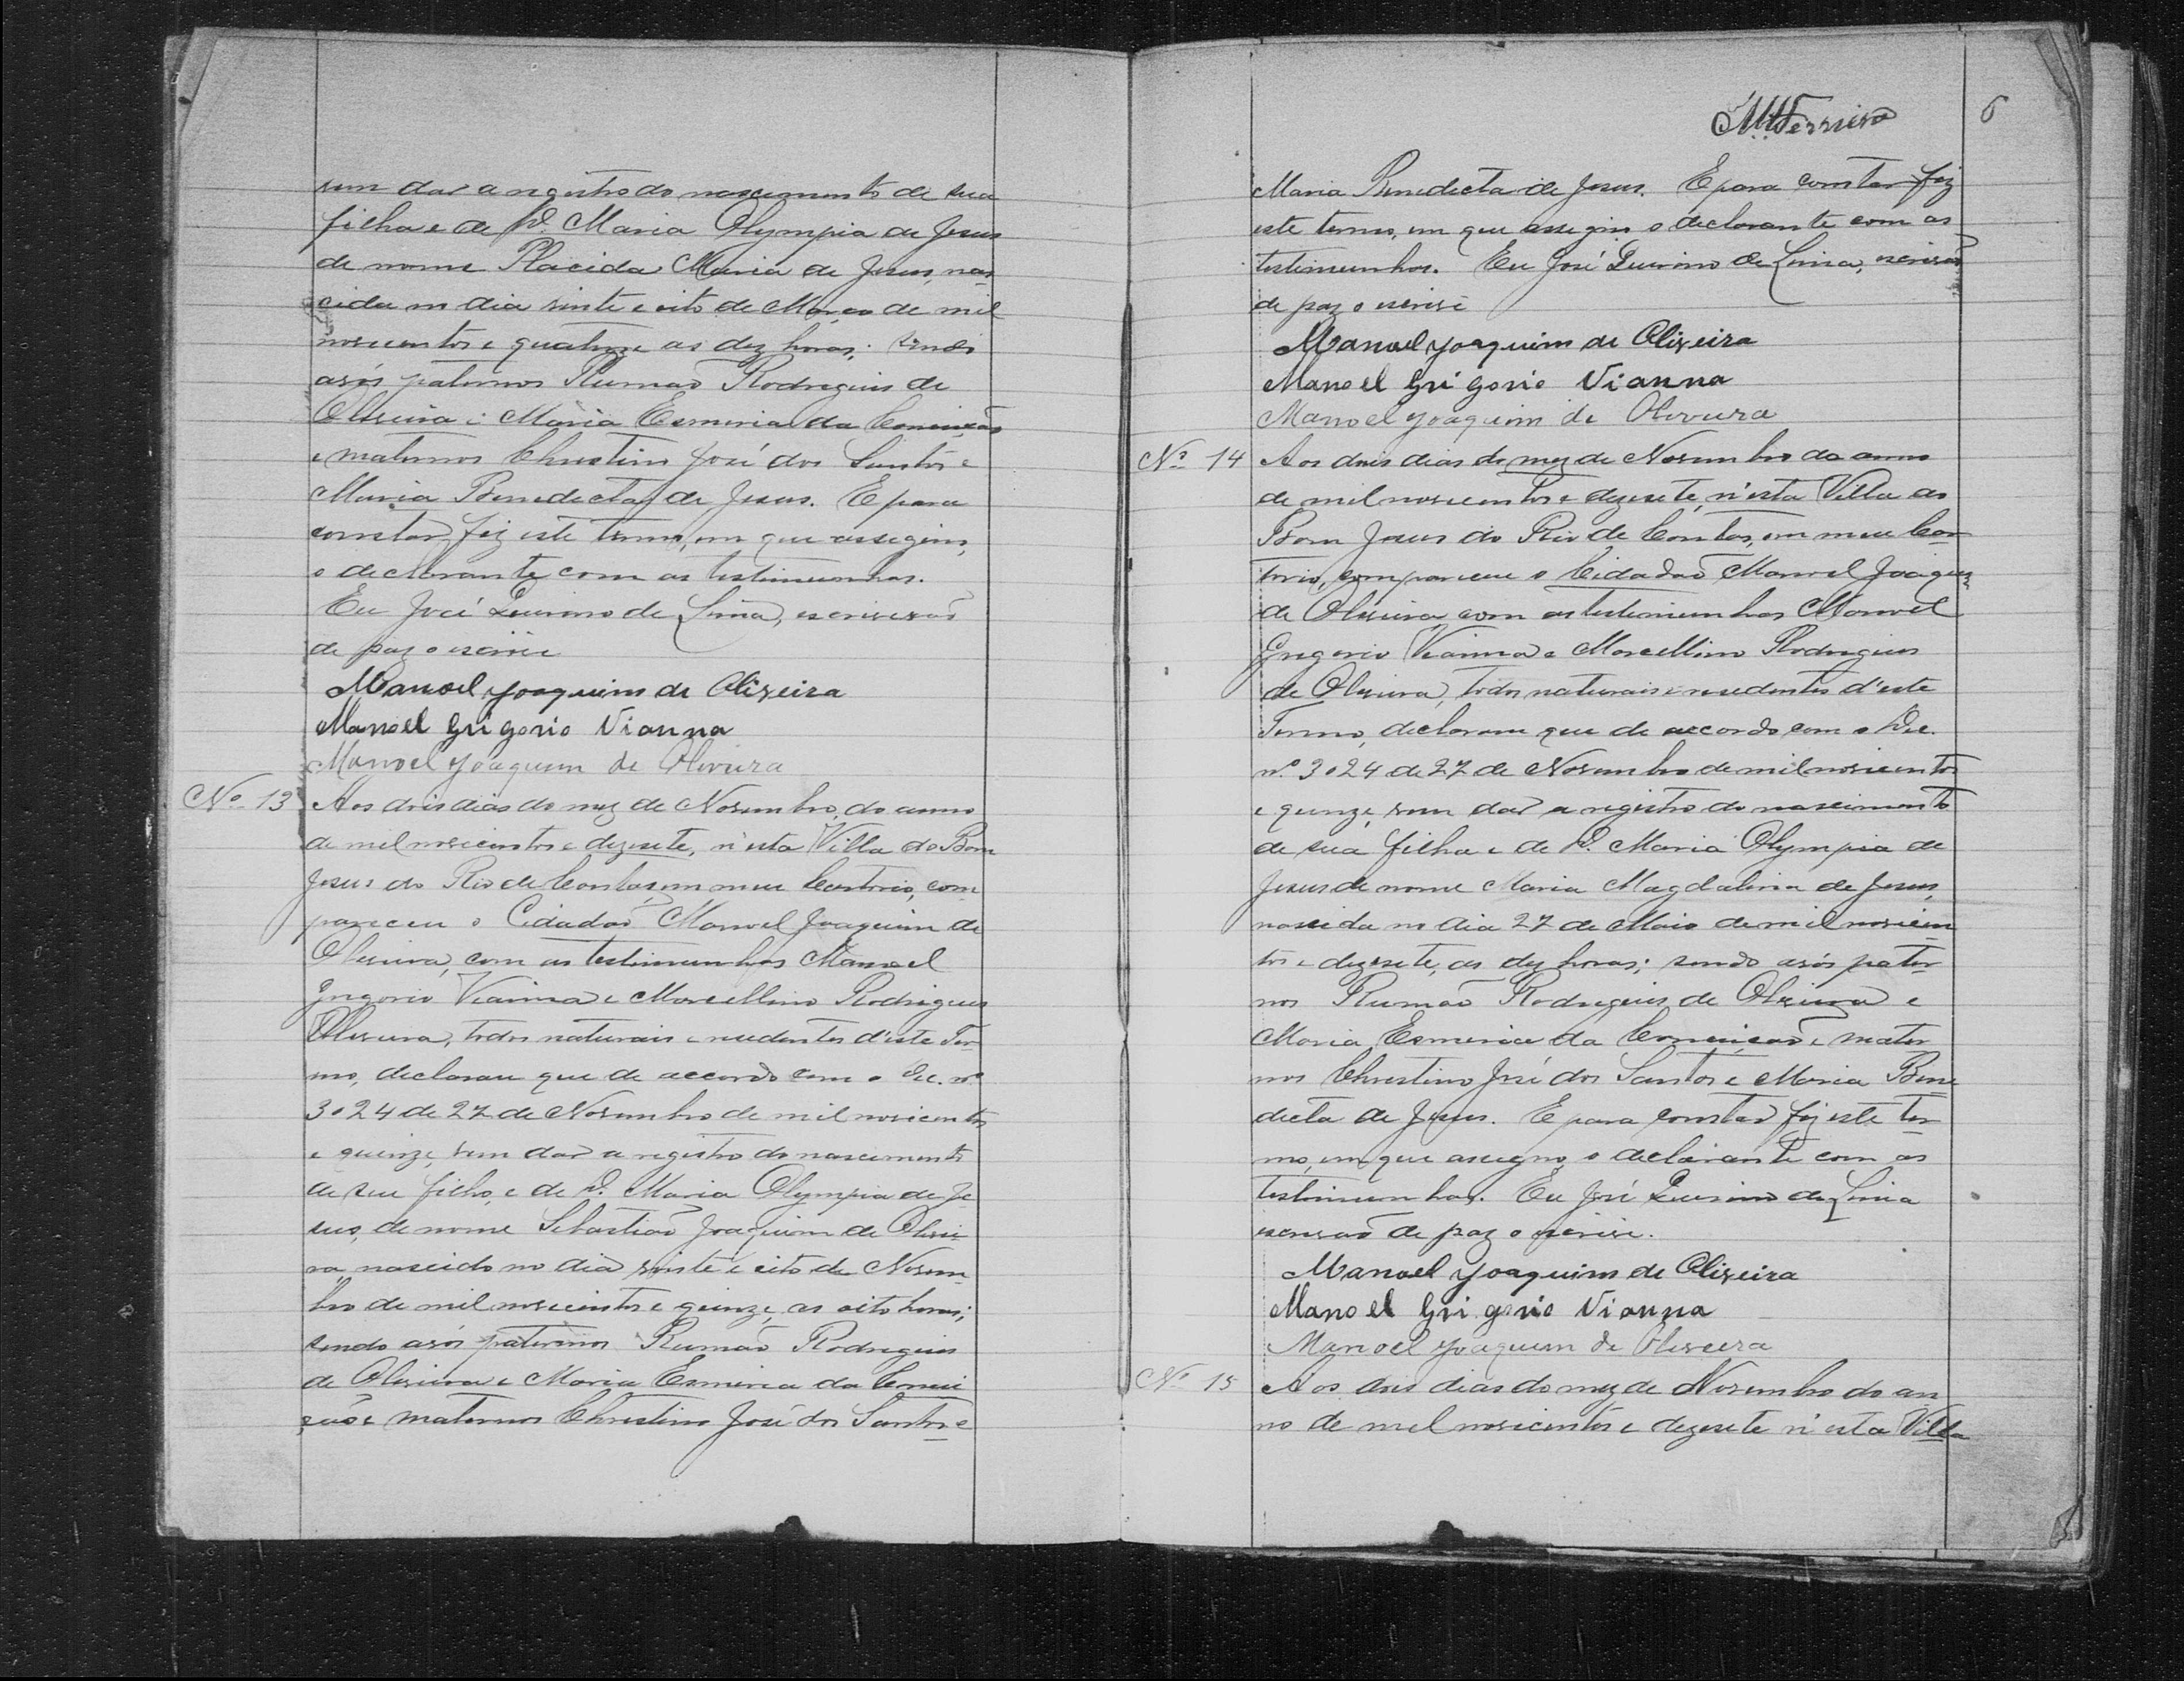 vem dar a registro do nascimento de sua
filha e de D. Maria Olympia de Jesus
de nome Placida Maria de Jesus, nas
cida no dia vinte e oito de Março de mil
novecentos e quatorze as dez horas; sendo
avós paternos Rumaõ Rodrigues de
Oliveira e Maria Esmeria da Conceiçaõ
e maternos Christino José dos Santos e
Maria Benedicta de Jesus. E para
constar, fiz este termo, em que assigno,
o declarante com as testimunhas.
Eu José Quirino de Lima, escrivaõ
de paz o escrivi
Manoel Joaquim de Oliveira
Manoel Grigorio Vianna
Manoel Joaquim de Oliveira
Nº 13 Aos dois dias do mez de Novembro, do anno
de mil novecentos e dezesete, n'esta Villa do Bom
Jesus do Rio de Contas, em meu Cartorio, com
pareceu o Cidadaõ Manoel Joaquim de
Oliveira, com as testimunhas Manoel
Gregorio Vianna e Marcellino Rodrigues
Oliveira, todos naturais e residentes d'este Ter
mo, declarou que de accordo com o Dec. nº
3024 de 27 de Novembro de mil novecentos
e quinze, vem dar a registro do nascimento
de seu filho, e de D. Maria Olympia de Je
sus, de nome Sebastiaõ Joaquim de Olivei
ra nascido no dia vinte e oito de Novem
bro de mil novecentos e quinze, as oito horas;
sendo avós paternos Rumaõ Rodrigues
de Oliveira e Maria Esmeria da Concei
çaõ e maternos Christino José dos Santos e
MFerreira 6
Maria Benedicta de Jesus. E para constar fiz
este termo, em que assigno o declarante com as
testimunhas. Eu José Quirino de Lima, escrivaõ
de paz o escrivi
Manoel Joaquim de Oliveira
Manoel Grigorio Vianna
Manoel Joaquim de Oliveira
Nº 14 Aos dois dias do mez de Novembro do anno
de mil novecentos e dezesete, n'esta Villa do
Bom Jesus do Rio de Contas, em meu Car
torio, compareceu o Cidadaõ Manoel Joaquim
de Oliveira, com as testimunhas Manoel
Gregorio Vianna e Marcellino Rodrigues
de Oliveira, todos naturais e residentes d'este
Termo, declarou que de accordo com o Dec.
nº 3024 de 27 de Novembro de mil novecentos
e quinze, vem dar a registro do nascimento
de sua filha e de D. Maria Olympia de
Jesus de nome Maria Magdalena de Jesus,
nascida no dia 27 de Maio de mil novecen
tos e dezesete, as dez horas; sendo avós pater
nos Rumaõ Rodrigues de Oliveira e
Maria Esmeria da Conceiçaõ e mater
nos Christino José dos Santos e Maria Bene
dicta de Jesus. E para constar fiz este ter
mo, em que assigno, o declarante com as
testimunhas. Eu José Quirino de Lima
escrivaõ de paz o escrivi.
Manoel Joaquim de Oliveira
Manoel Grigorio Vianna
Manoel Joaquim de Oliveira
Nº 15 Aos dois dias do mez de Novembro do an
no de mil novecentos e dezesete n'esta Villa